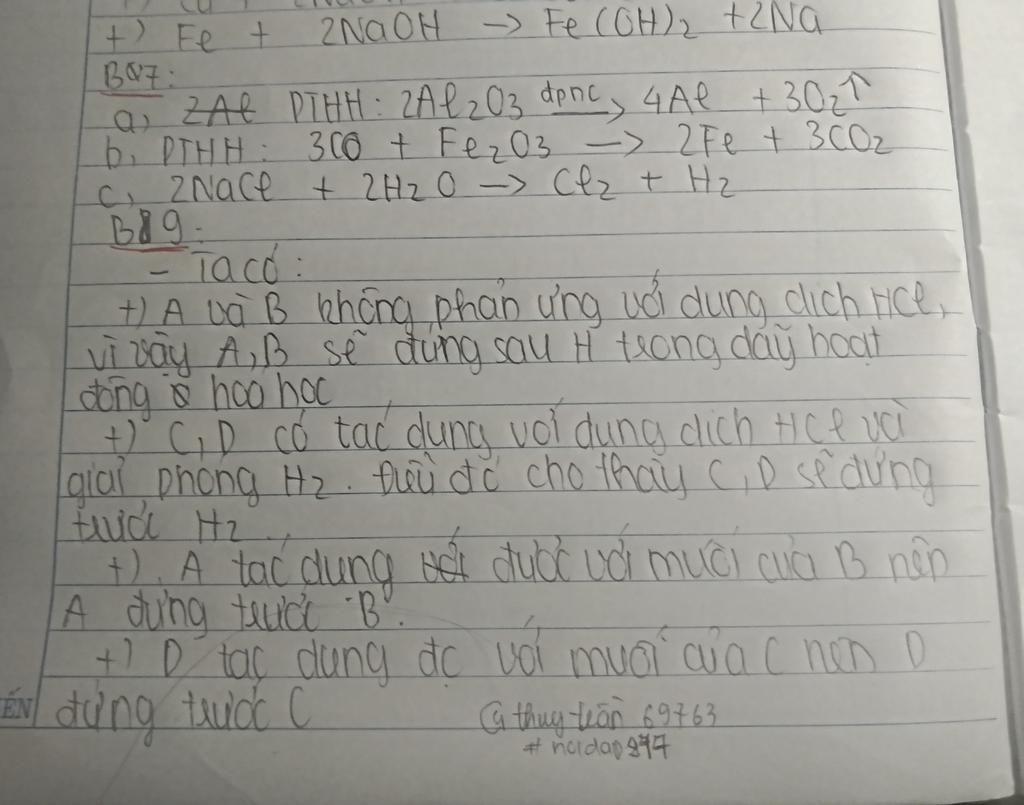 +) Fe + 2NaOH → Fe(OH)2 + 2Na
B87:
a, 2Al PTHH: 2Al2O3 dpnc→ 4Al + 3O2↑
b, PTHH: 3CO + Fe2O3 → 2Fe + 3CO2
c, 2NaCl + 2H2O → Cl2 + H2
B89:
- Ta có:
+) A và B không phản ứng với dung dịch HCl,
vì vậy A,B sẽ đứng sau H trong dãy hoạt
động hoá học
+) C,D có tác dụng với dung dịch HCl và
giải phóng H2. Điều đó cho thấy C,D sẽ đứng
trước H2
+) A tác dụng được với muối của B nên
A đứng trước B.
+) D tác dụng đc với muối của C nên D
đứng trước C
@thuytrần69763
ẾN